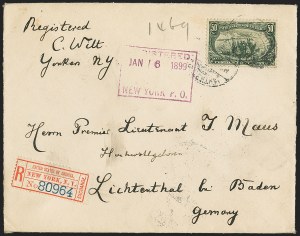 Registered
C. Witt
Yonkers NY
1469
REGISTERED
JAN 16 1899
NEW YORK P. O.
50
Herrn Premier Lieutenant T. Maus
Hochwohlgeboren
NEW YORK, N.Y.
No 80964
Lichtenthal bei Baden
Germany